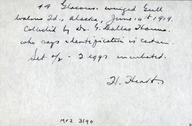 44 Glaucous-winged Gull
Walrus Id., Alaska, June 16th 1919.
Collected by Dr. G. Dallas Hanna.
who says identification is certain
Set of 2 - 2 eggs incubated.
H. Heath
MVZ 3190